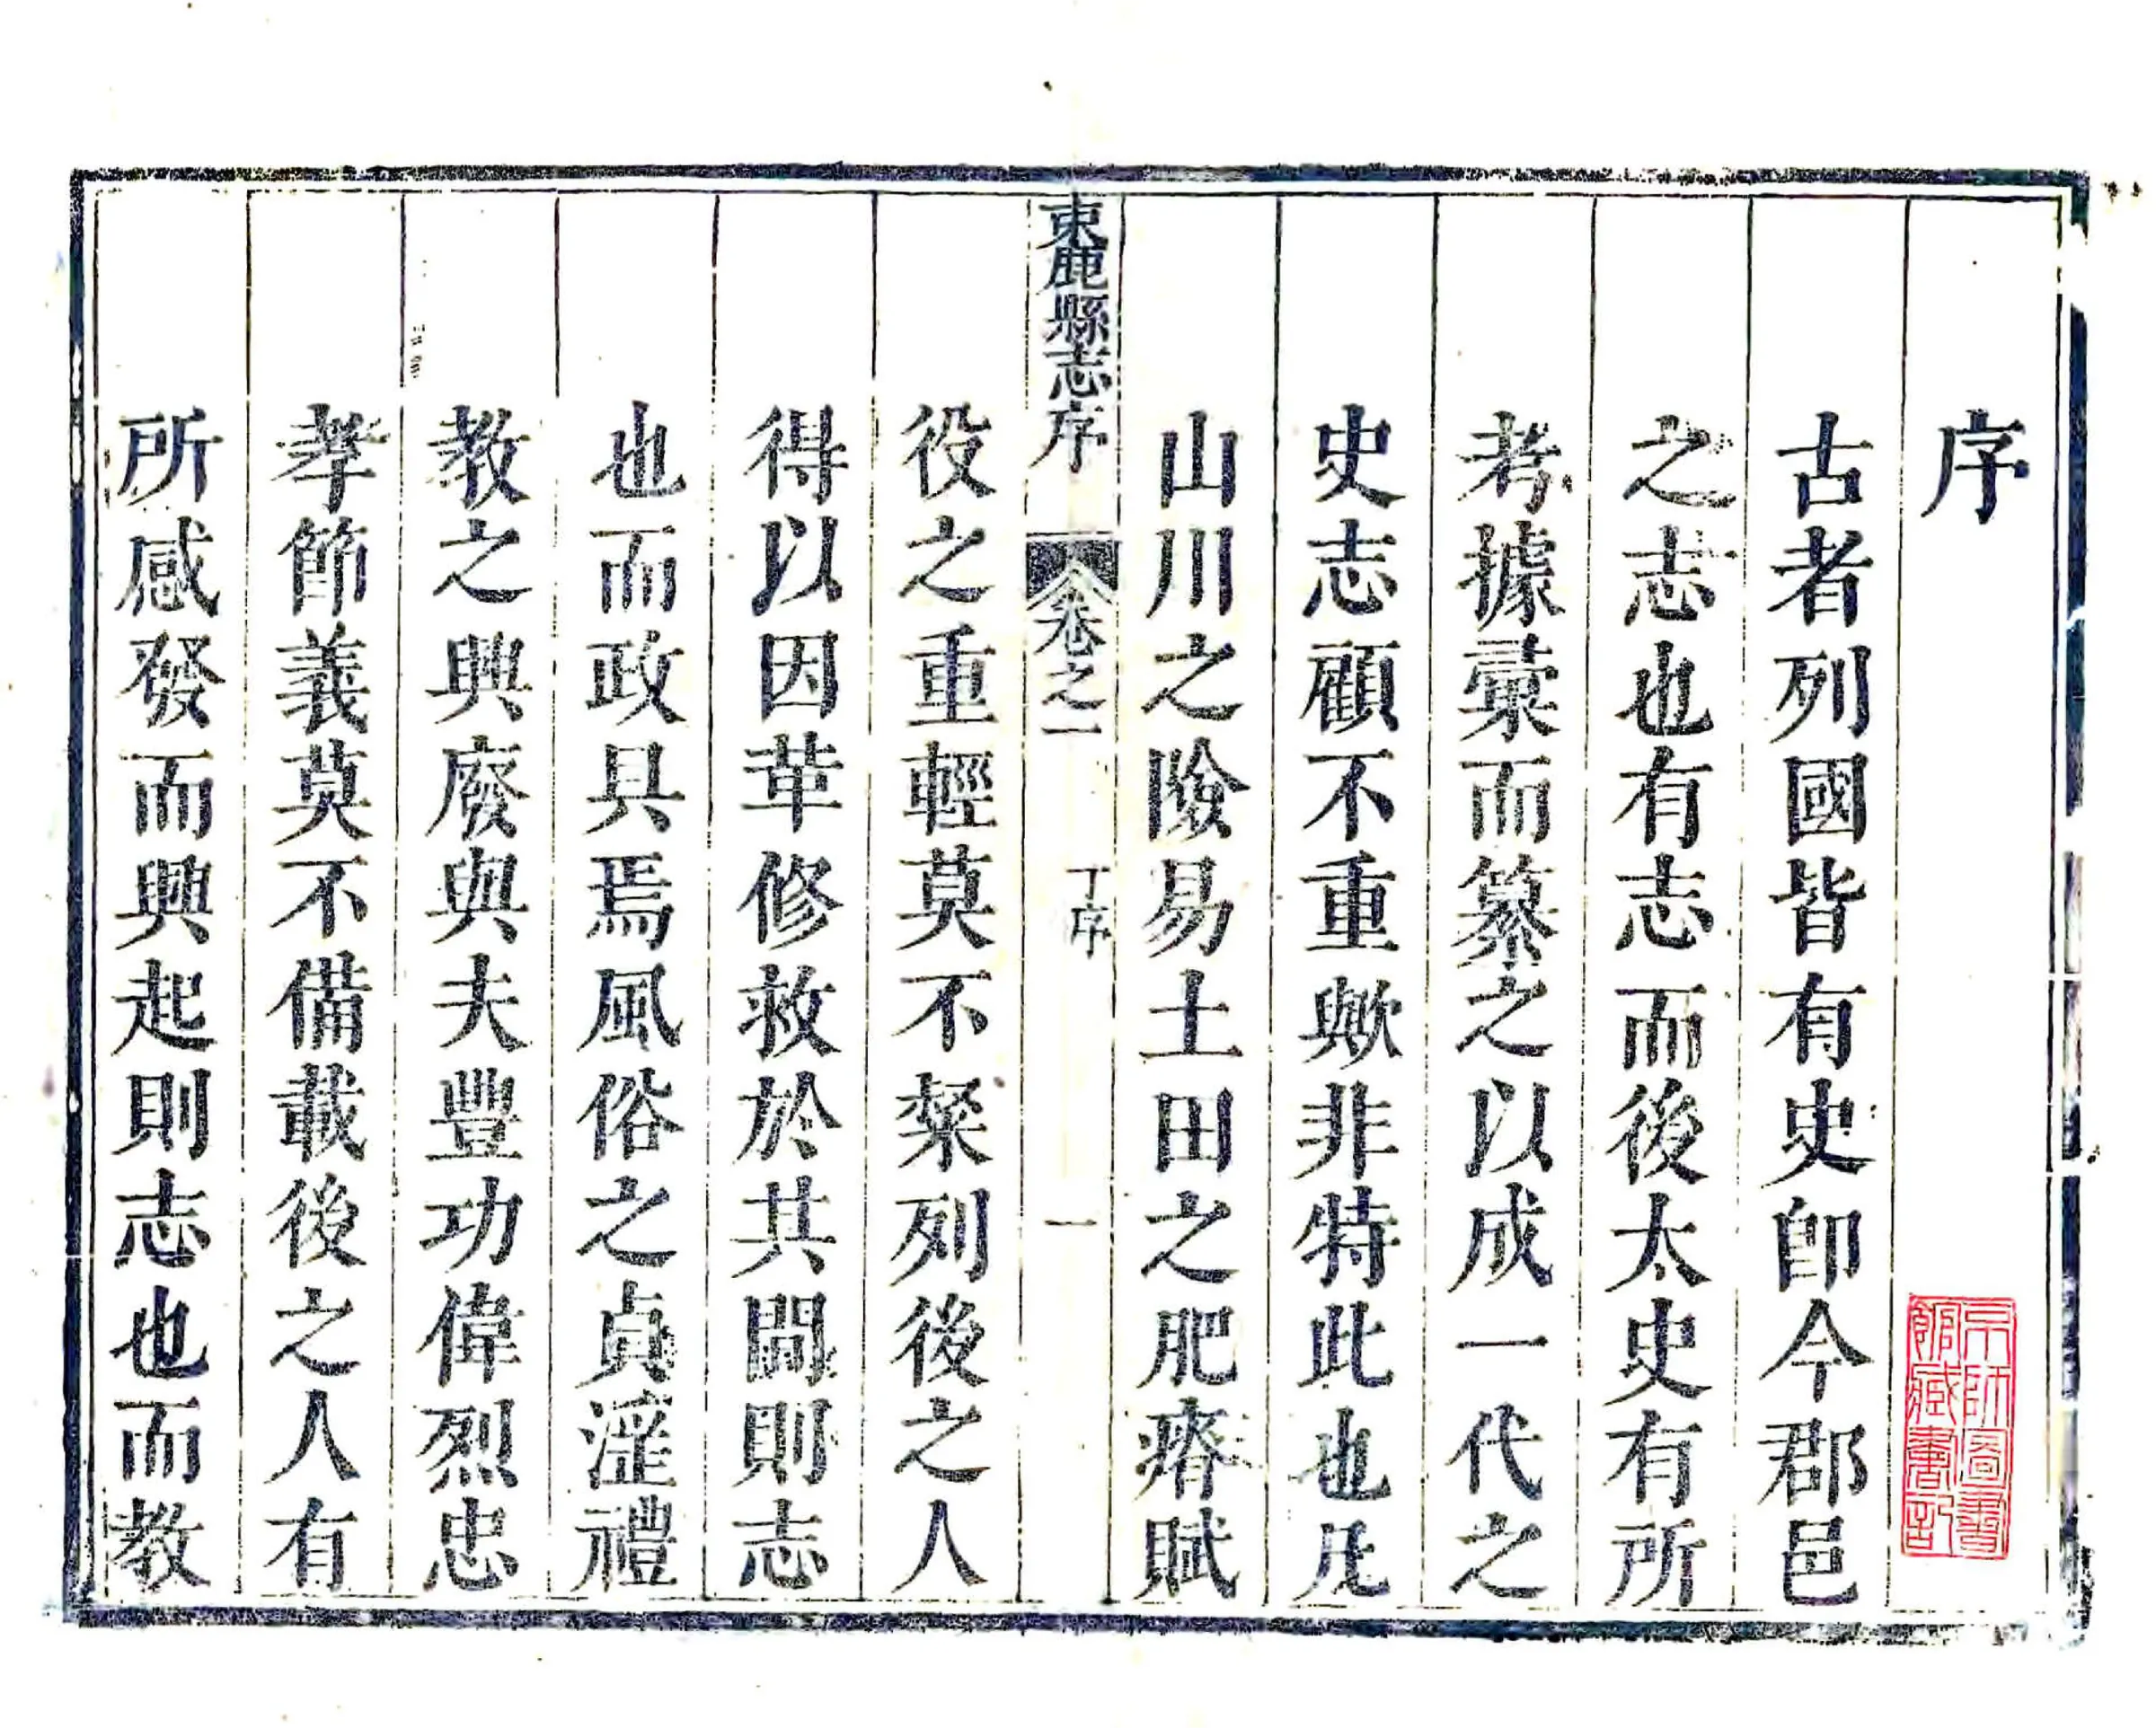 序
古者列國皆有史卽今郡邑
之志也有志而後太史有所
考據彚而纂之以成一代之
史志顧不重歟非特此也凡
山川之險易土田之肥瘠賦
束鹿縣志序 卷之一 丁序 一
役之重輕莫不粲列後之人
得以因革修救於其間則志
也而政具焉風俗之貞滛禮
教之興廢與夫豐功偉烈忠
孝節義莫不備載後之人有
所感發而興起則志也而教
京師圖書
館藏書記